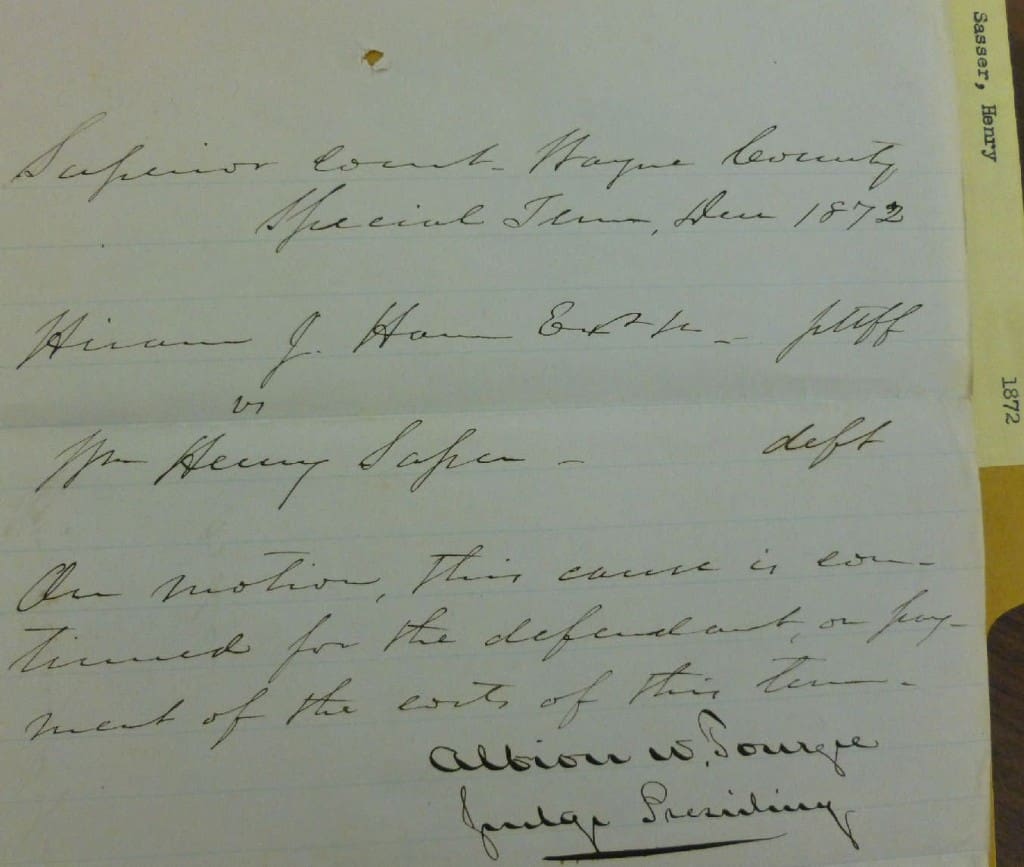 Superior Court - Wayne County
Special Term, Dec 1872
Hiram J. Ham - pltff
vs
Wm Henry Sasser - deft
On motion, this cause is con-
tinued for the defendant, on pay-
ment of the costs of this term -
Albion W. Tourgee
Judge Presiding
Sasser, Henry
1872